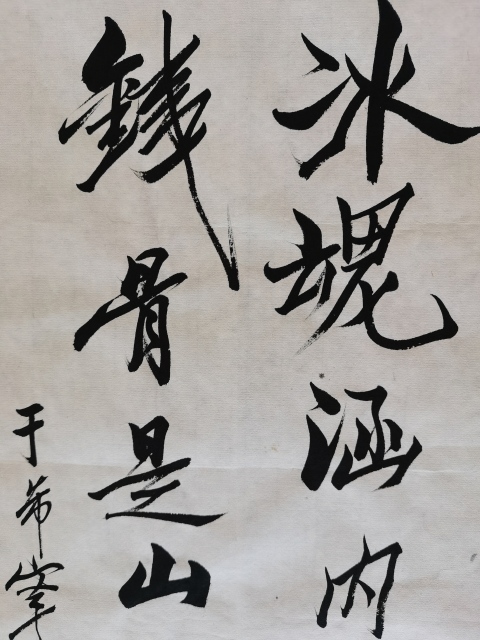 冰魂涵内
鐵骨是山
于希峯